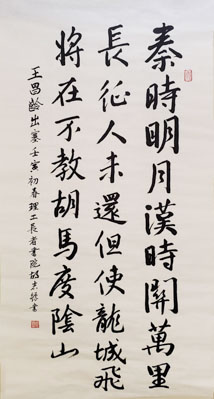 秦時明月漢時關萬里
長征人未還但使龍城飛
將在不教胡馬度陰山
王昌齡出塞壬寅初春理工長者書院書